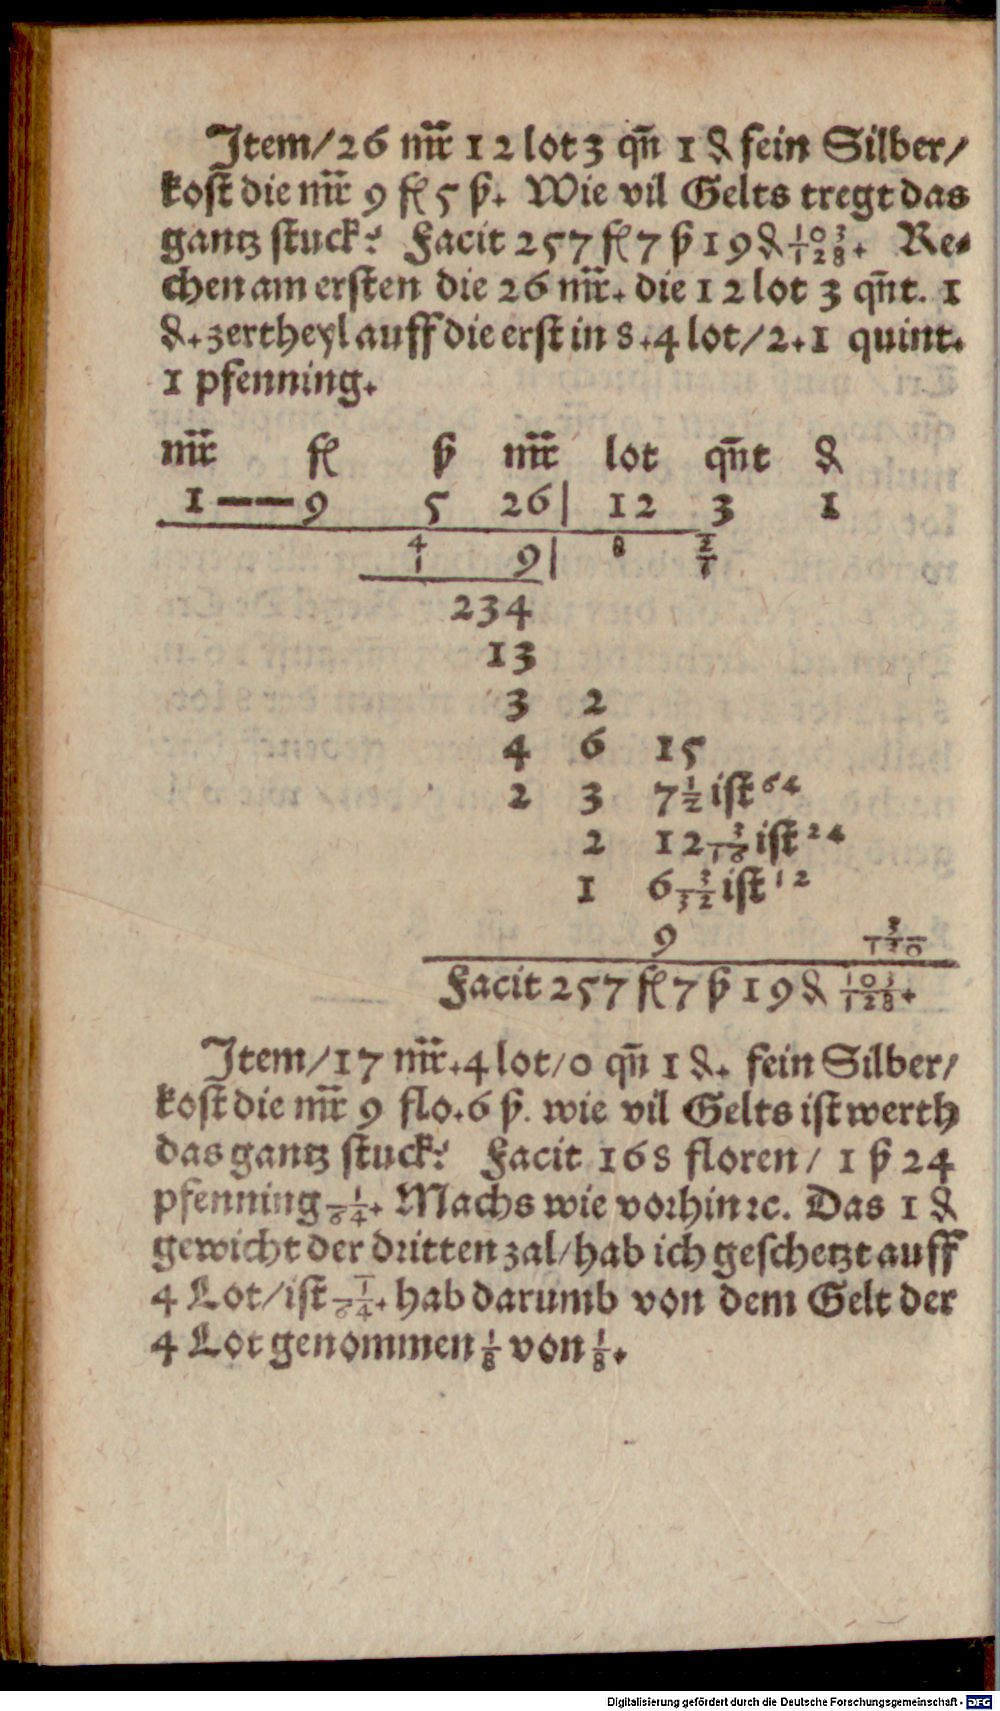 Jtem/26 mr̃ 12 lot 3 qñ 1 ₰ fein Silber/
kost die mr̃ 9 fl 5 ß. Wie vil Gelts tregt das
gantz stuck? Facit 257 fl 7 ß 19 ₰ 103/128. Re-
chen am ersten die 26 mr̃. die 12 lot 3 qñt. 1
₰. zertheyl auff die erst in 8.4 lot/2.1 quint.
1 pfenning.
mr̃ fl ß mr̃ lot qñt ₰
1 — 9 5 26| 12 3 1
4/1 9| 8 2/1
234
13
3 2
4 6 15
2 3 7 1/2 ist 64
2 12 3/16 ist 24
1 6 3/32 ist 12
9
Facit 257 fl 7 ß 19 ₰ 103/128.
Jtem/17 mr̃.4 lot/0 qñ 1 ₰. fein Silber/
kost die mr̃ 9 flo.6 ß. wie vil Gelts ist werth
das gantz stuck? Facit 168 floren/ 1 ß 24
pfenning 1/64. Machs wie vorhin ꝛc. Das 1 ₰
gewicht der dritten zal/hab ich geschetzt auff
4 Lot/ist 1/64. hab darumb von dem Gelt der
4 Lot genommen 1/8 von 1/8.
Digitalisierung gefördert durch die Deutsche Forschungsgemeinschaft - DFG